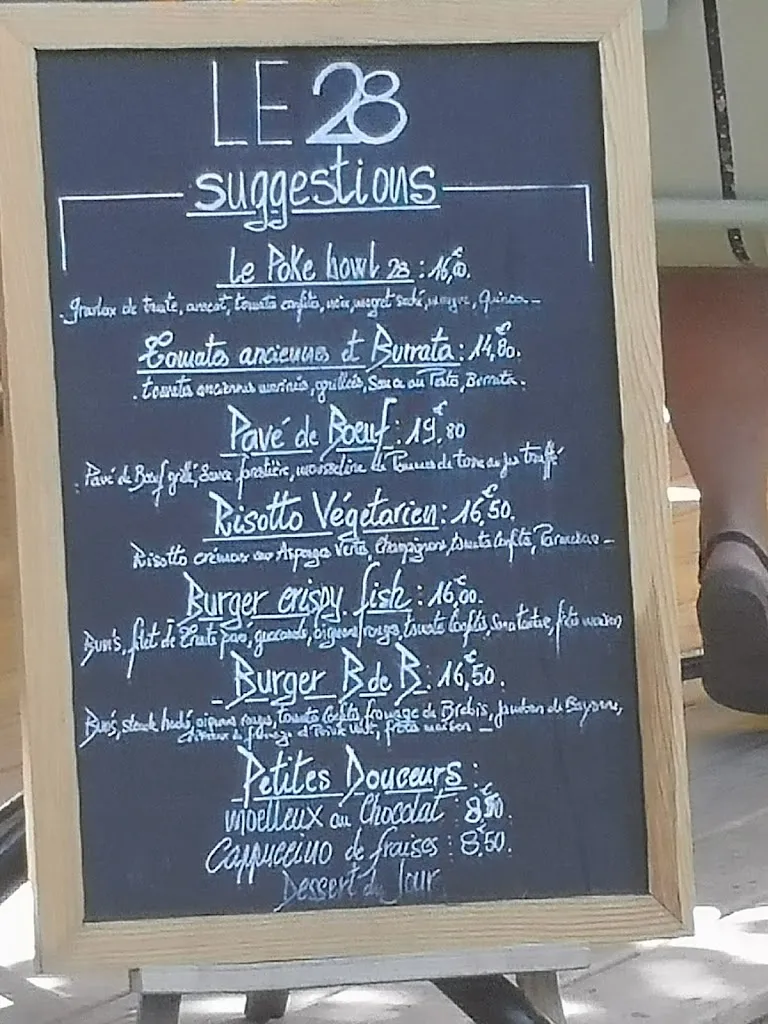 LE 28
suggestions
Le Poke bowl 28 : 16,€
gravlax de truite, tomate confites, noix, magret séché, Quinoa
Tomates anciennes et Burrata : 14,€80.
. tomates anciennes marinés, grillés, Sauce au Pesto, Burrata.
Pavé de Boeuf : 19.€80
. Pavé de Bœuf grillé, Sauce forestière, mousseline de Pommes de terre au jus truffé
Risotto Végétarien : 16,€50.
Risotto crémeux aux Asperges Verts, Champignons, tomate Confite, Parmesan
Burger crispy fish : 16,€00.
Bun's, filet de Truite pané, guacamole, oignons rouges, tomate confits, Sauce tartare, frites maison
- Burger B de B : 16,€50.
Bun's, steak haché, oignons rouges, tomate Confits, fromage de Brebis, Jambon de Bayonne,
frites maison
Petites Douceurs :
moelleux au Chocolat : 8,€50.
Cappuccino de fraises : 8,€50.
Dessert du Jour